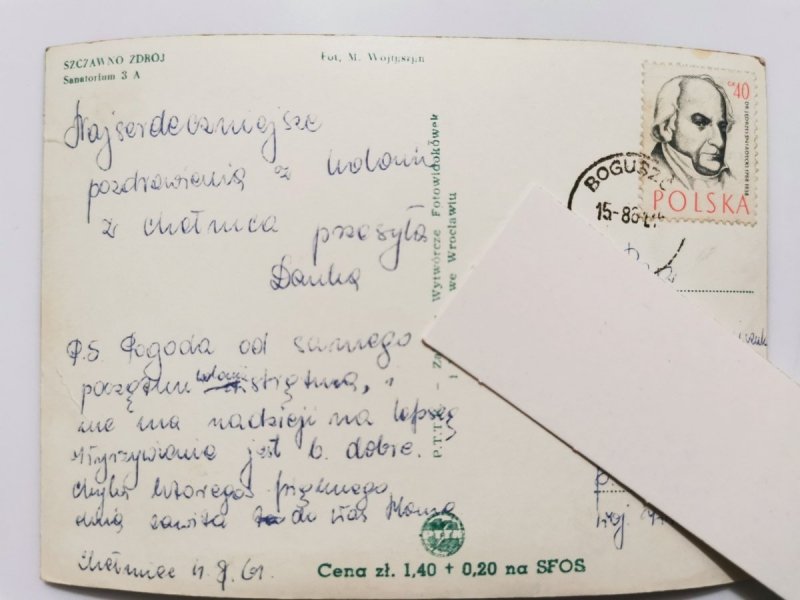 SZCZAWNO ZDRÓJ
Sanatorium 3 A
Fot. M. Wojtyszyn
Najserdeczniejsze
pozdrowienia z
z Chełmca przesyła
Danka
P.S Pogoda od samego
początku
nie ma nadzieji na lepszą
Wyżywienie jest b. dobre.
chyba któregoś pięknego
dnia zawita do Was
Chełmiec 61
P.T.T.K. Wytwórcze Fotowidokówek
we Wrocławiu
Cena zł. 1,40 + 0,20 na SFOS
GR 40
POLSKA
BOGUSZ
15-8
woj.